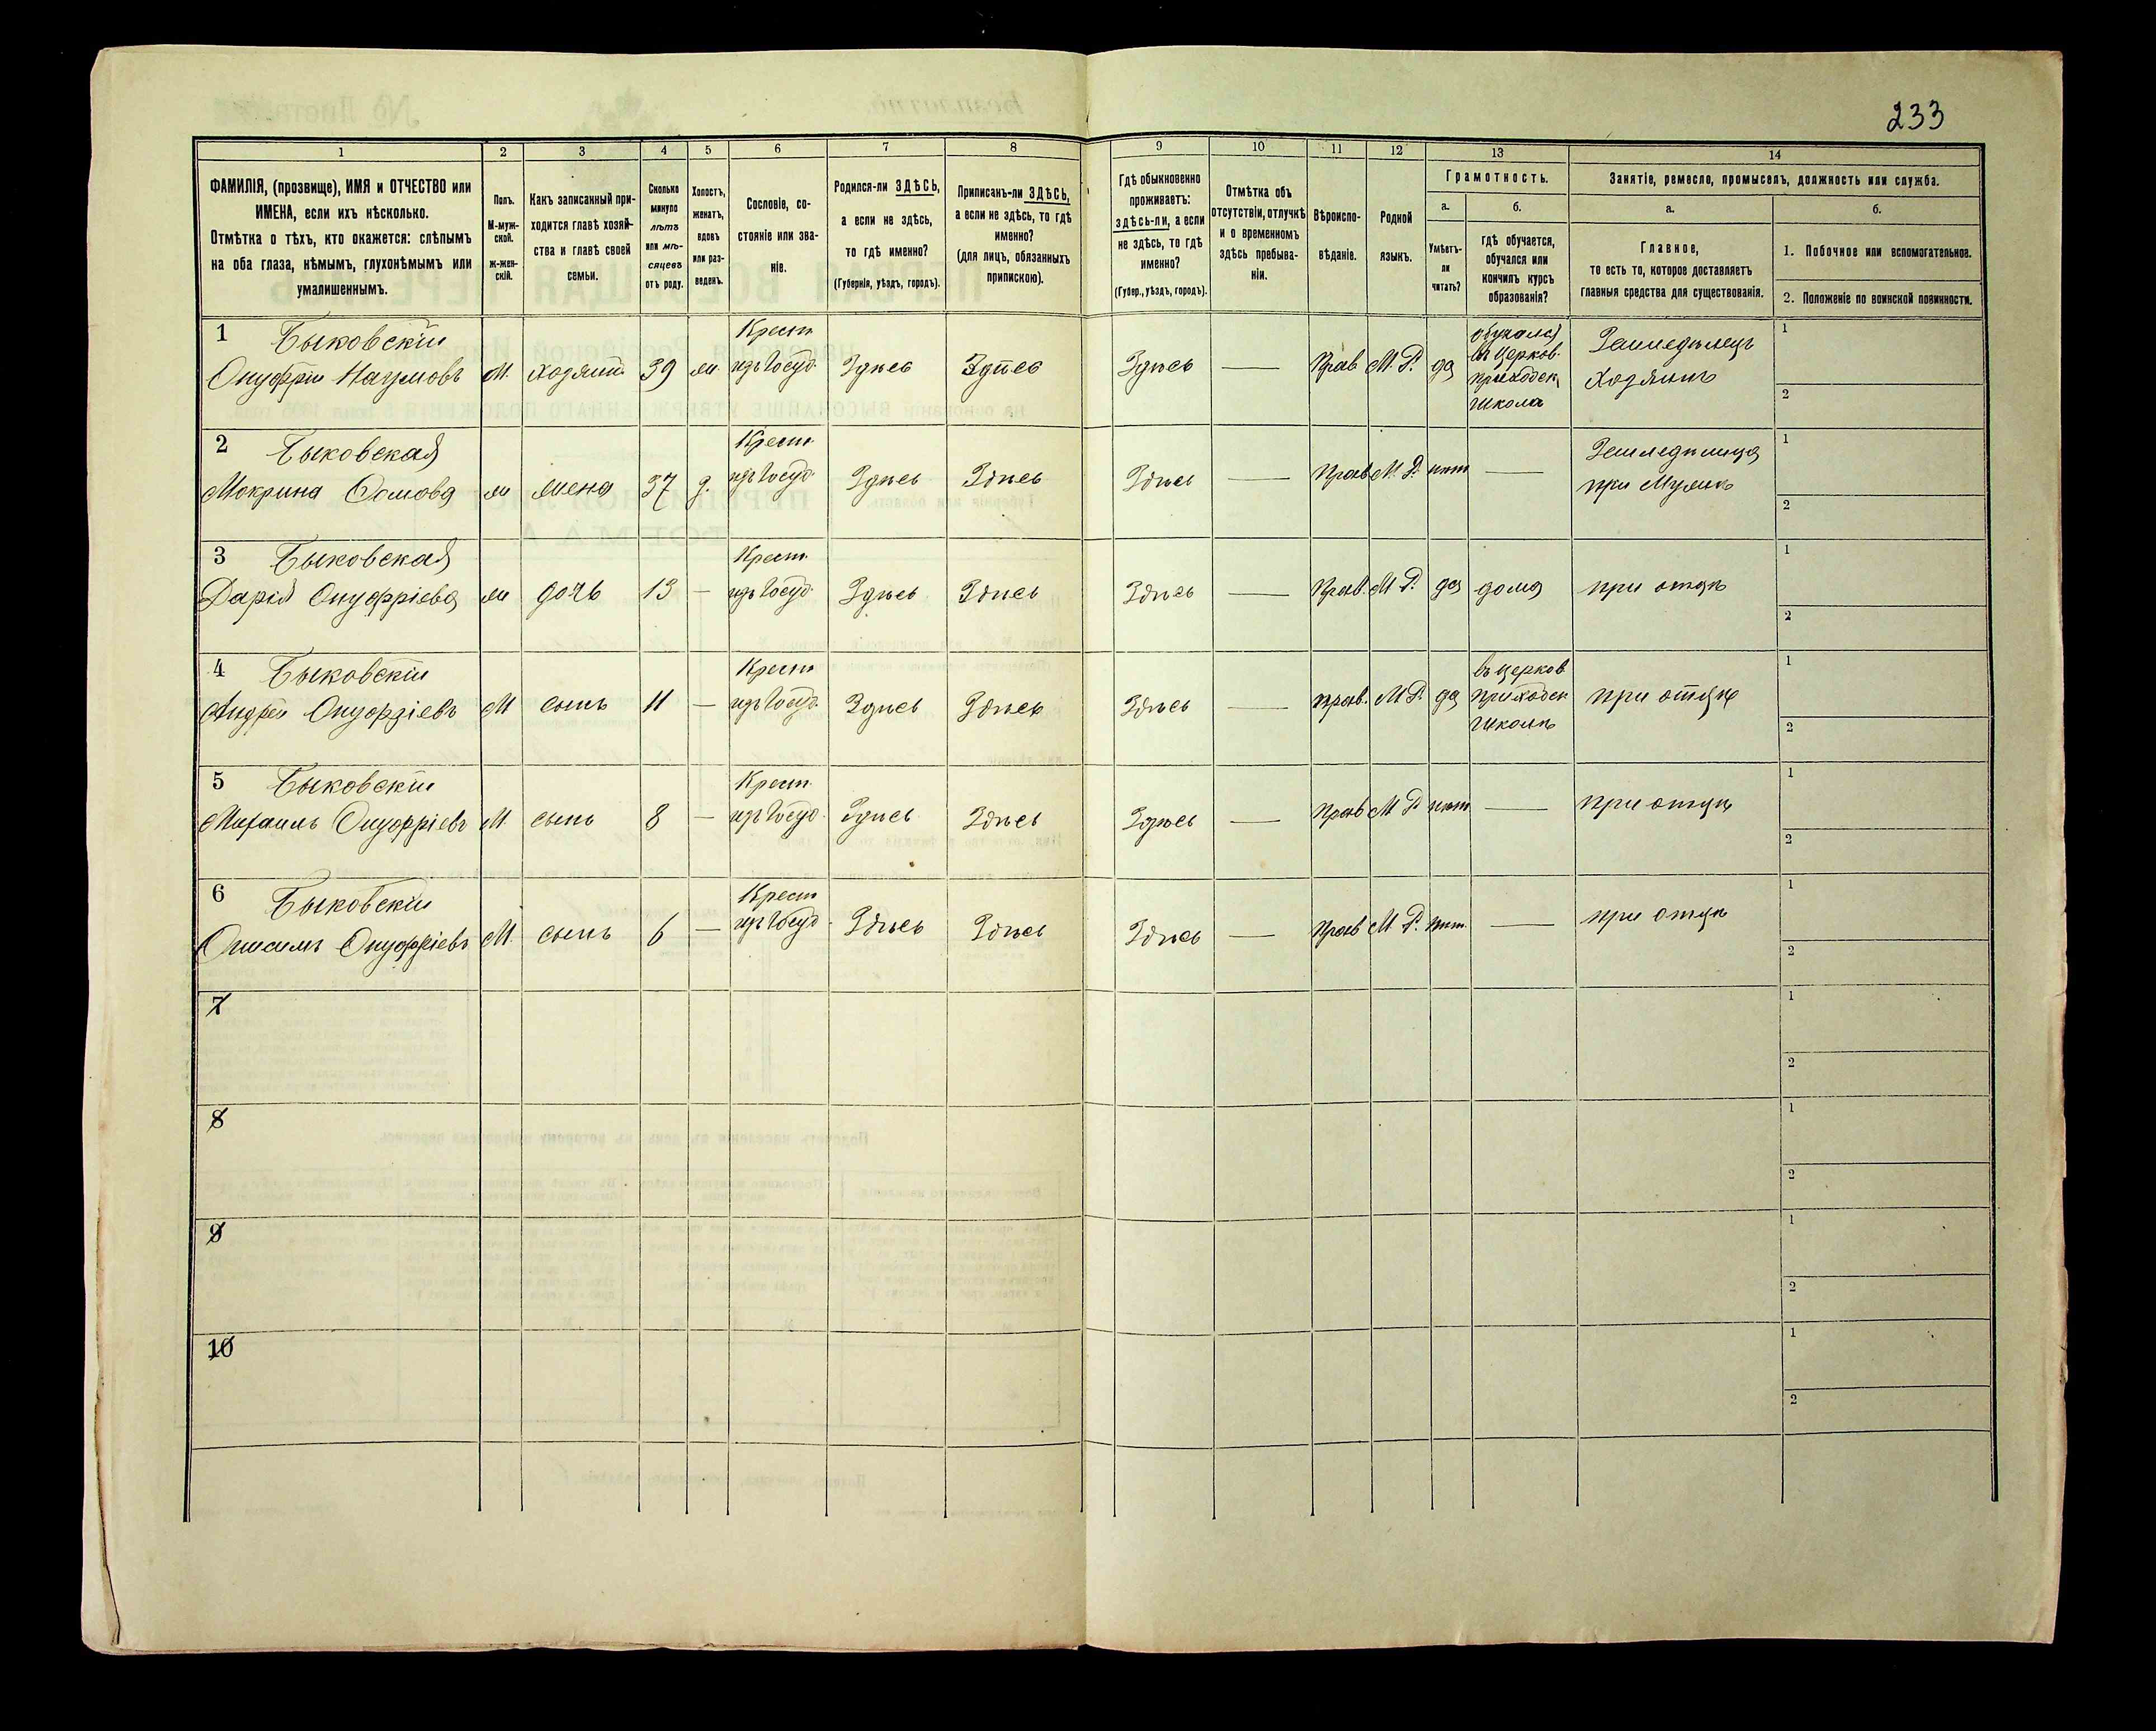 233
1 2 3 4 5 6 7 8 9 10 11 12 13 14
ФАМИЛІЯ, (прозвище), ИМЯ и ОТЧЕСТВО или
ИМЕНА, если ихъ нѣсколько.
Отмѣтка о тѣхъ, кто окажется: слѣпымъ
на оба глаза, нѣмымъ, глухонѣмымъ или
умалишеннымъ.
Полъ.
М-муж-
ской.
ж-жен-
скій.
Какъ записанный при-
ходится главѣ хозяй-
ства и главѣ своей
семьи.
Сколько
минуло
лѣтъ
или мѣ-
сяцевъ
отъ роду.
Холостъ,
женатъ,
вдовъ
или раз-
веденъ.
Сословіе, со-
стояніе или зва-
ніе.
Родился-ли ЗДѢСЬ,
а если не здѣсь,
то гдѣ именно?
(Губернія, уѣздъ, городъ).
Приписанъ-ли ЗДѢСЬ,
а если не здѣсь, то гдѣ
именно?
(для лицъ, обязанныхъ
припискою).
Гдѣ обыкновенно
проживаетъ:
здѣсь-ли, а если
не здѣсь, то гдѣ
именно?
(Губер., уѣздъ, городъ).
Отмѣтка объ
отсутствіи, отлучкѣ
и о временномъ
здѣсь пребыва-
ніи.
Вѣроиспо-
вѣданіе.
Родной
языкъ.
Грамотность.
а.
Умѣетъ-
ли
читать?
б.
гдѣ обучается,
обучался или
кончилъ курсъ
образованія?
Занятіе, ремесло, промыселъ, должность или служба.
а.
Главное,
то есть то, которое доставляетъ
главныя средства для существованія.
б.
1. Побочное или вспомогательное.
2. Положеніе по воинской повинности.
1 Быковскій Крест. обучался Земледѣлецъ 1
Онуфрій Наумовъ М. хозяинъ 39 ж. изъ Госуд. Здѣсь Здѣсь Здѣсь — Прав М. Р. да въ церков. Хозяинъ
приходск.
школѣ 2
2 Быковская Крест. Земледѣлица 1
Мокрина ж жена 37 з. изъ Госуд. Здѣсь Здѣсь Здѣсь — Прав М. Р. нѣт — при Мужѣ
2
3 Быковская Крест. 1
Дарія Онуфріева ж дочь 13 — изъ Госуд. Здѣсь Здѣсь Здѣсь — Прав. М. Р. да дома при отцѣ
2
4 Быковскій Крест въ церков 1
Андрей Онуфріевъ М сынъ 11 — изъ Госуд. Здѣсь Здѣсь Здѣсь — прав. М. Р. да приходск при отцѣ
школѣ 2
5 Быковскій Крест. 1
Михаилъ Онуфріевъ М. сынъ 8 — изъ Госуд. Здѣсь Здѣсь Здѣсь — Прав М Р. нѣт — при отцѣ
2
6 Быковскій Крест 1
Онисимъ Онуфріевъ М. сынъ 6 — изъ Госуд. Здѣсь Здѣсь Здѣсь — Прав М. Р. нѣт. — при отцѣ
2
7 1
2
8 1
2
9 1
2
10 1
2